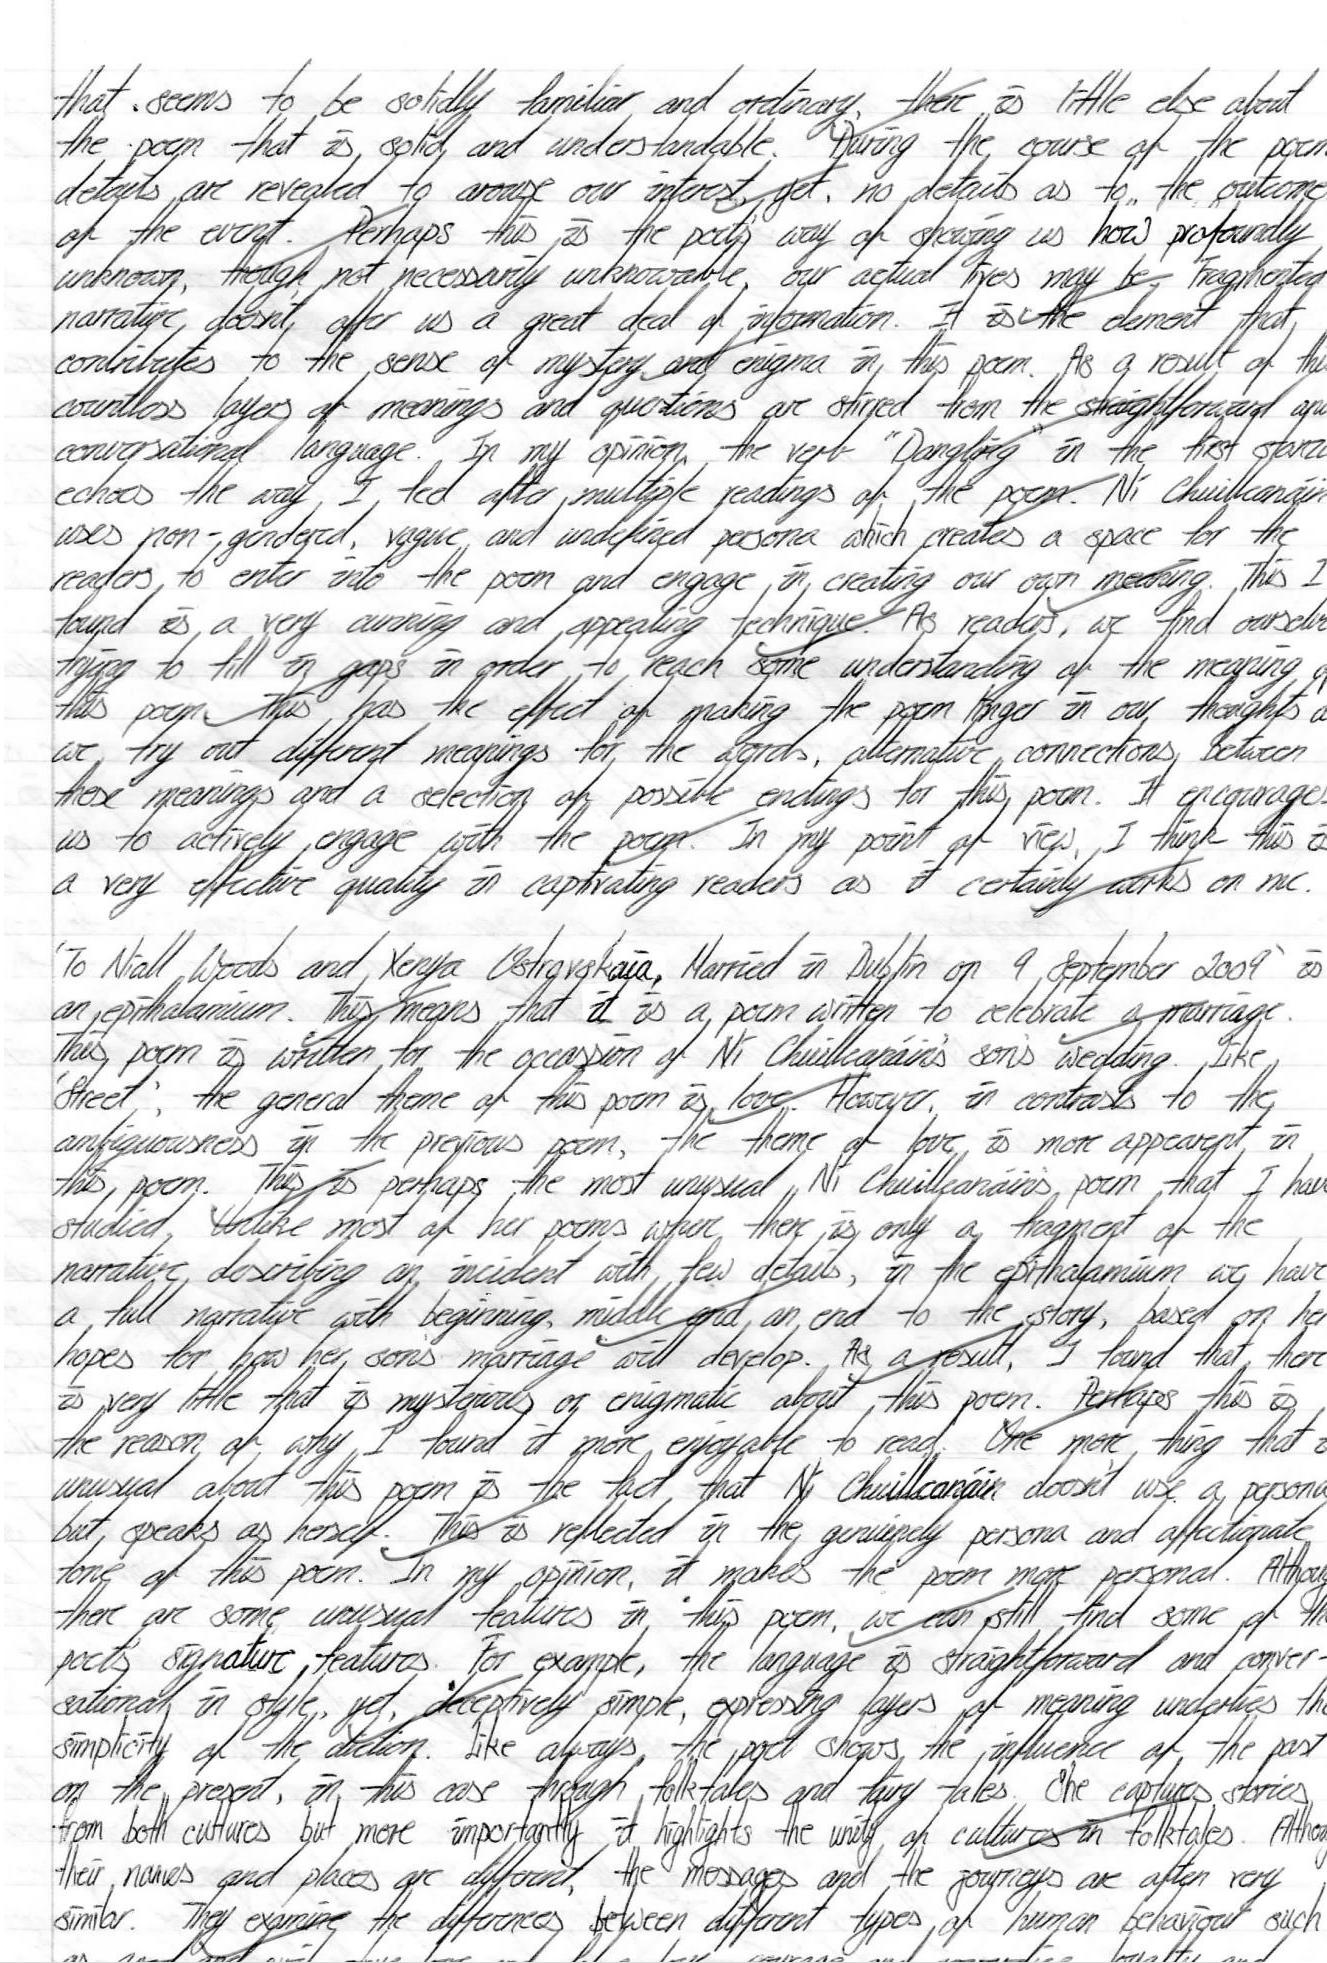 that seems to be solidly familiar and ordinary, there is little else about
the poem that is solid and understandable. During the course of the poem
details are revealed to arouse our interest, yet, no details as to the outcome
of the event. Perhaps this is the poet's way of showing us how profoundly
unknown, though not necessarily unknowable, our actual lives may be. Fragmented
narrative doesn't offer us a great deal of information. It is the element that
contributes to the sense of mystery and enigma in this poem. As a result of this
countless layers of meanings and questions are stirred from the straightforward and
conversational language. In my opinion, the verb "Dangling" in the first stanza
echoes the way I feel after multiple readings of the poem. Ní Chuilleanáin
uses non-gendered, vague and undefined persona which creates a space for the
readers to enter into the poem and engage in creating our own meaning. This I
found is a very cunning and appealing technique. As readers, we find ourselves
trying to fill in gaps in order to reach some understanding of the meaning of
this poem. This has the effect of making the poem linger in our thoughts as
we try out different meanings for the words, alternative connections between
these meanings and a selection of possible endings for this poem. It encourages
us to actively engage with the poem. In my point of view, I think this is
a very effective quality in captivating readers as it certainly works on me.
'To Niall Woods and Xenya Ostravskaia, Married in Dublin on 9 September 2009' is
an epithalamium. This means that it is a poem written to celebrate a marriage.
This poem is written for the occassion of Ní Chuilleanáin's son's wedding. Like
'Street', the general theme of this poem is love. However, in contrasts to the
ambiguousness in the previous poem, the theme of love is more appearent in
this poem. This is perhaps the most unusual Ní Chuilleanáin's poem that I have
studied. Unlike most of her poems where there is only a fragment of the
narrative describing an incident with few details, in the epithalamium we have
a full narrative with beginning, middle and an end to the story, based on her
hopes for how her son's marriage will develop. As a result, I found that there
is very little that is mysterious or enigmatic about this poem. Perhaps this is
the reason of why I found it more enjoyable to read. One more thing that is
unusual about this poem is the fact that Ní Chuilleanáin doesn't use a persona
but speaks as herself. This is reflected in the genuinely persona and affectionate
tone of this poem. In my opinion, it makes the poem more personal. Although
there are some unusual features in this poem, we can still find some of the
poet's signature features. For example, the language is straightforward and conver-
sational in style, yet, deceptively simple, expressing layers of meaning underlies the
simplicity of the diction. Like always, the poet shows the influence of the past
on the present, in this case through folktales and fairy tales. She captures stories
from both cultures but more importantly it highlights the unity of cultures in folktales. Although
their names and places are different, the messages and the journeys are often very
similar. They examine the differences between different types of human behaviour such